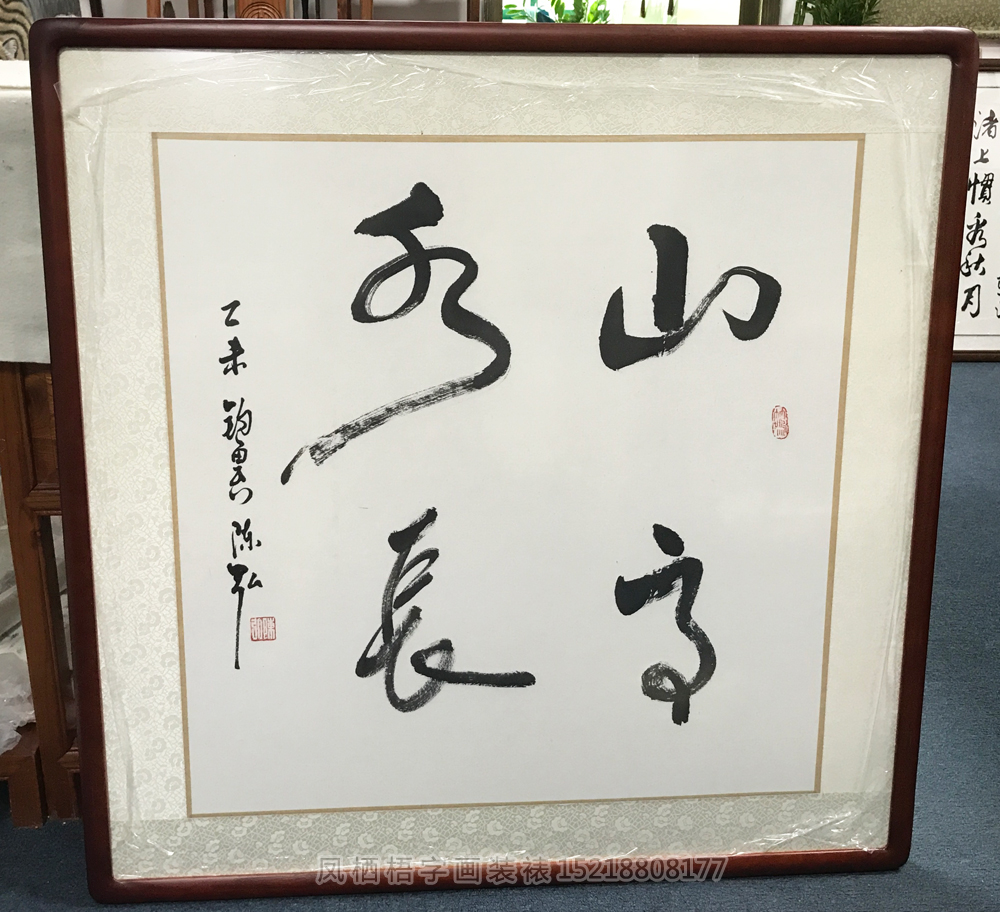 山高
水長
乙未 陈弘
渚上慣看秋月
凤栖梧字画装裱 15218808177